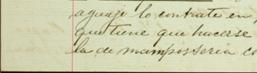 aguaje lo contrate en
que tiene que hacerse
la de mamposteria co